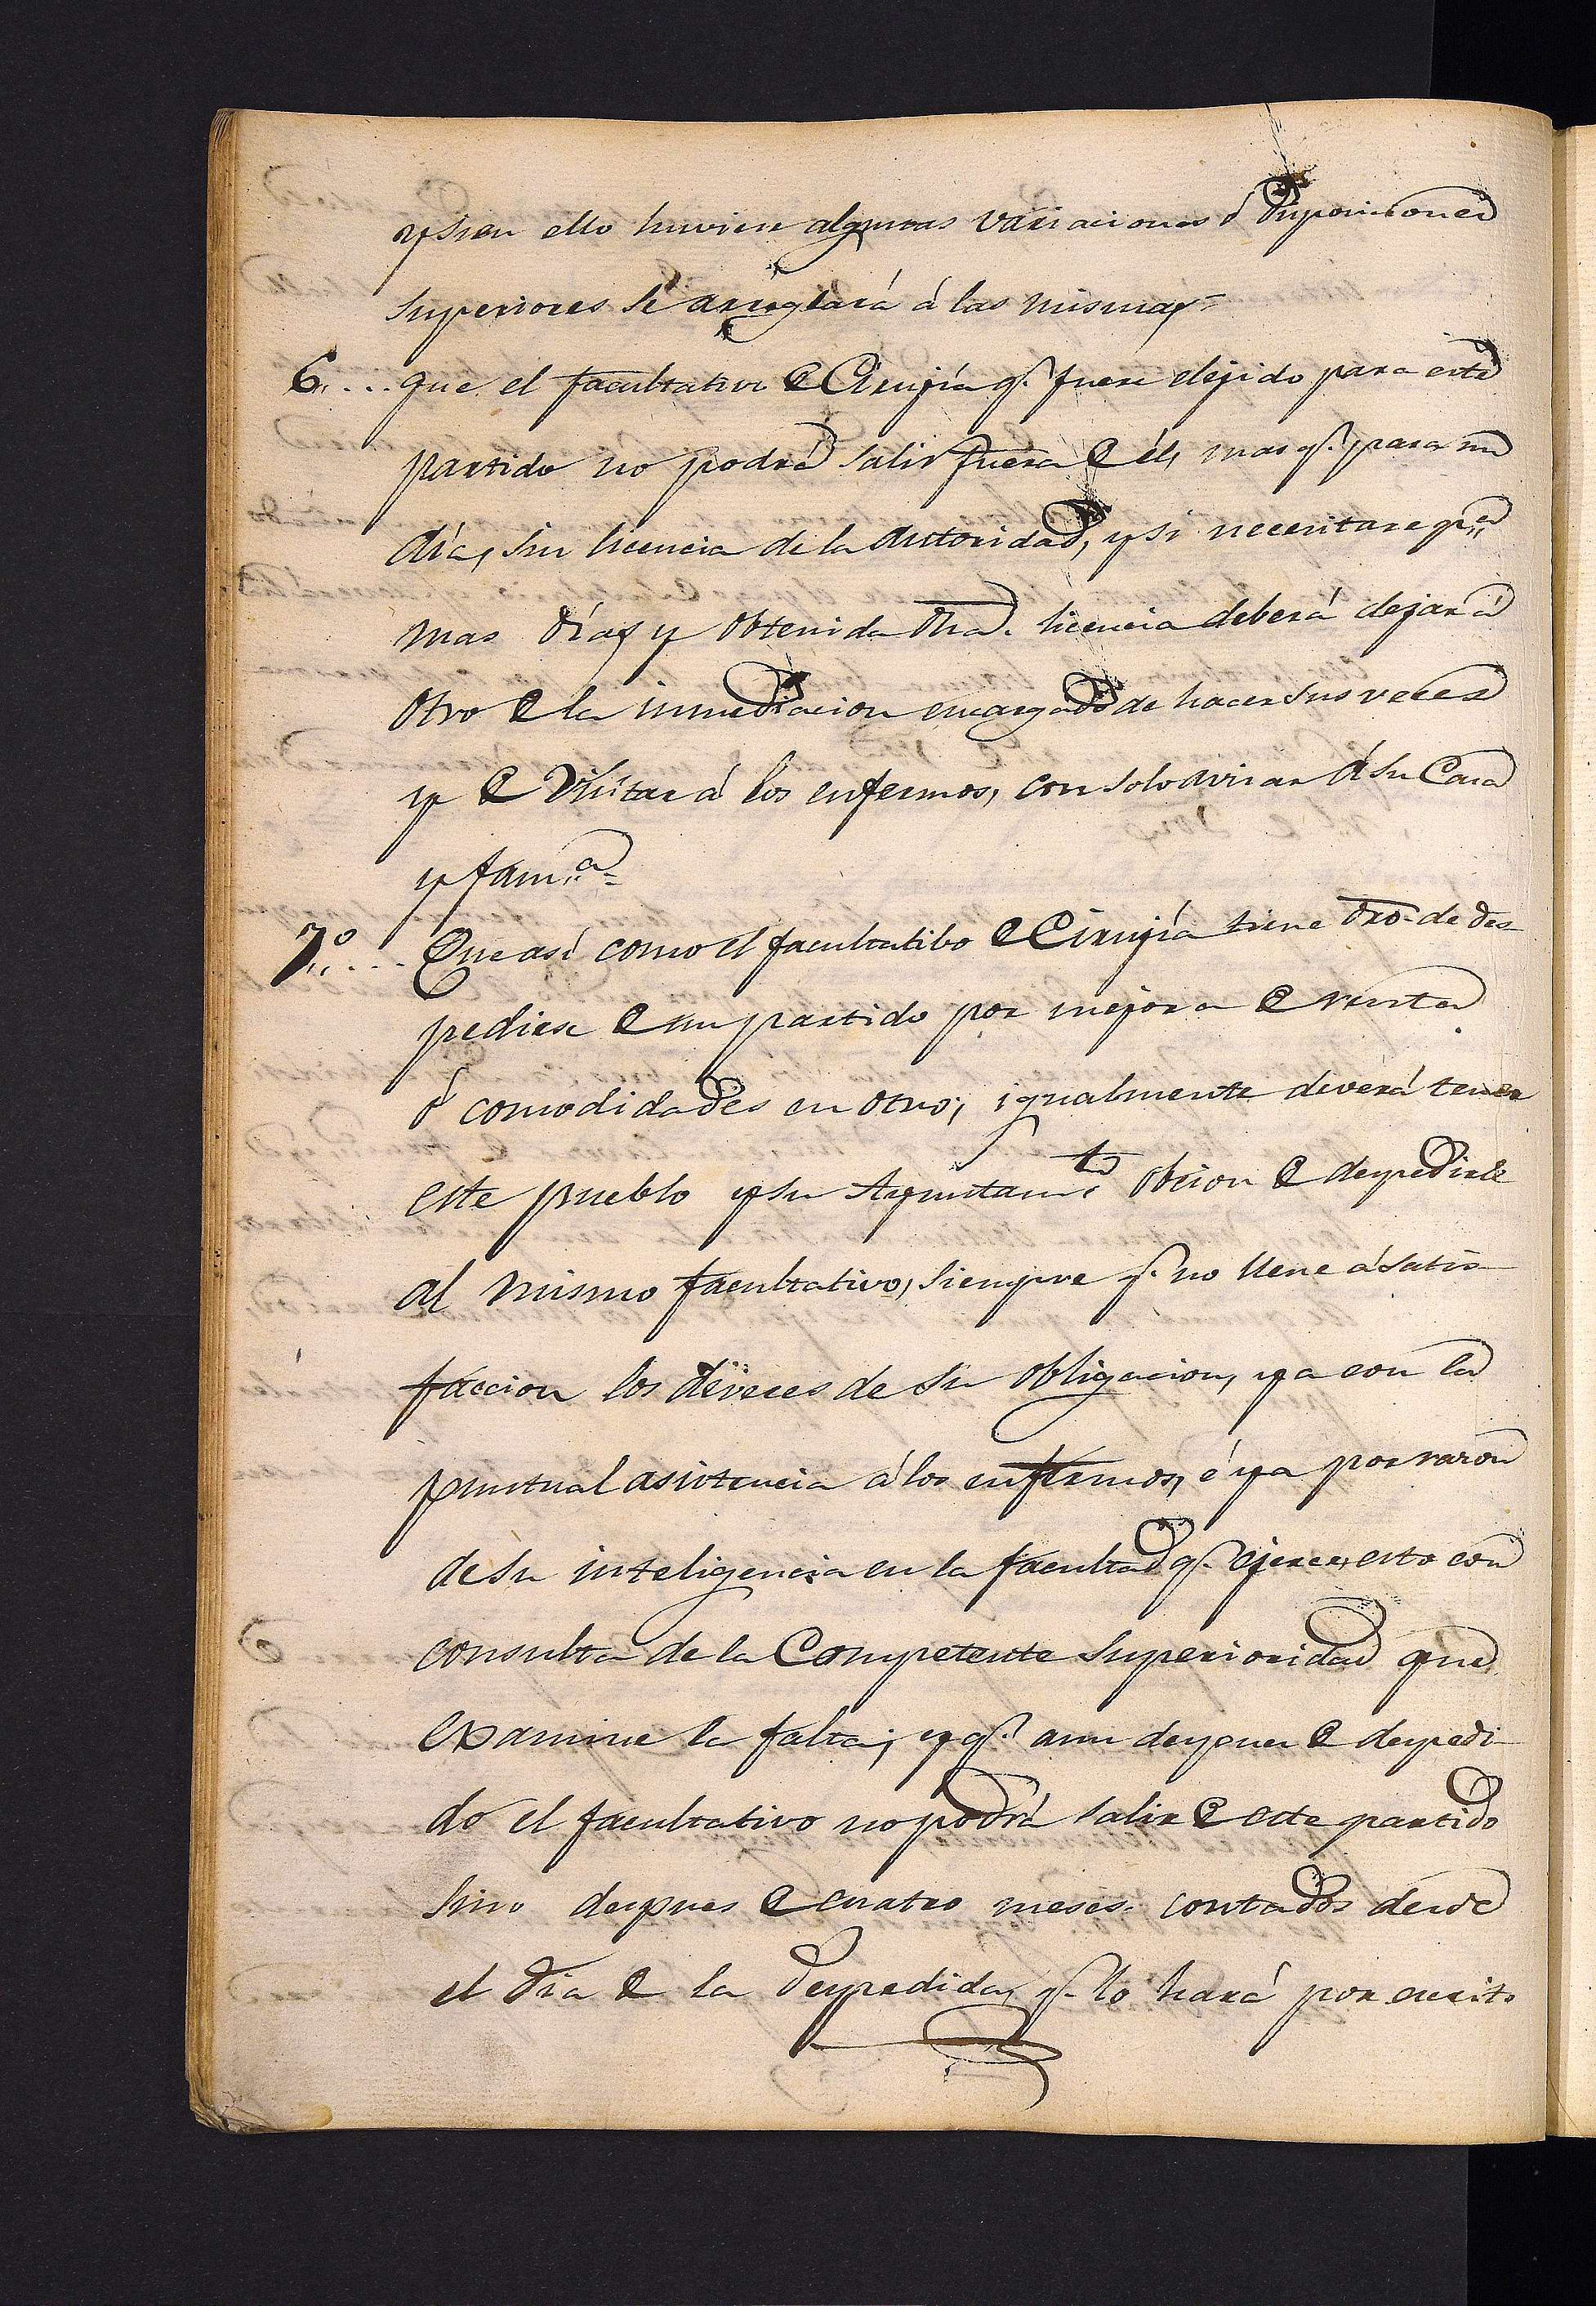 y si en ello huviere algunas variaciones ó disposiciones
superiores se arreglará á las mismas=
6.... que el facultativo de Cirujía q.e fuere elejido para este
partido no podrá salir fuera de él, mas q.e para un
día, sin licencia de la Autoridad, y si necesitare p.a
mas días y obtenida dha. licencia deberá dejar á
otro de la inmediacion encargado de hacer sus veces
y de visitar á los enfermos, con solo avisar á su Casa
y fam.a=
7.º... Que así como el facultatibo de Cirujía tiene dro. de des
pedirse de un partido por mejora de renta
ó comodidades en otro; igualmente deverá tener
este pueblo y su Ayuntam.to obcion de despedirle
al mismo facultativo, siempre q.e no llene á satis
faccion los deveres de su obligacion, ya con la
puntual asistencia á los enfermos, é ya por razon
de su inteligencia en la facultad q.e ejerce, esto con
consulta de la Competente Superioridad que
examine la falta; y q.e aun despues de despedi
do el facultativo no podrá salir de este partido
sino despues de cuatro meses contados desde
el día de la despedida, q.e lo hará por escrito